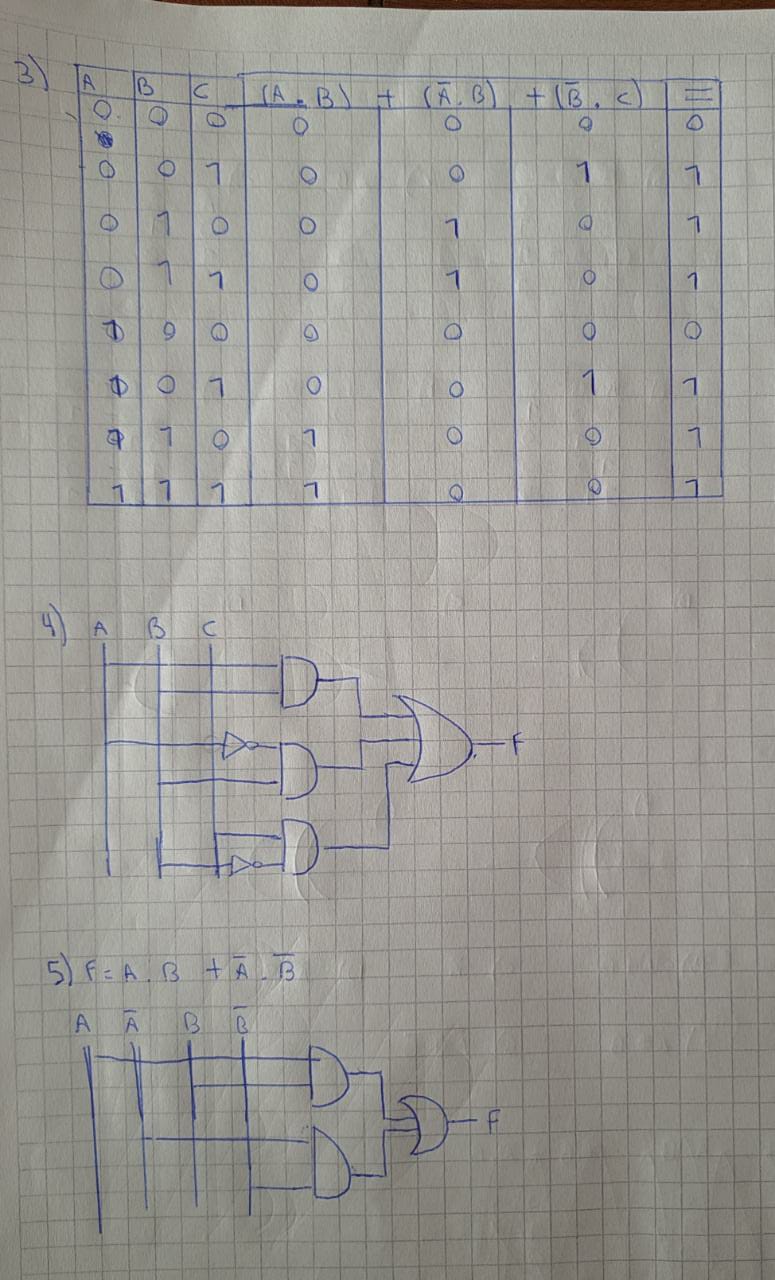 3) A B C (A . B) + (Ā . B) + (B̅ . C) =
0 0 0 0 0 0 0
0 0 1 0 0 1 1
0 1 0 0 1 0 1
0 1 1 0 1 0 1
1 0 0 0 0 0 0
1 0 1 0 0 1 1
1 1 0 1 0 0 1
1 1 1 1 0 0 1
4) A B C
F
5) F = A . B + Ā . B̅
A Ā B B̅
F